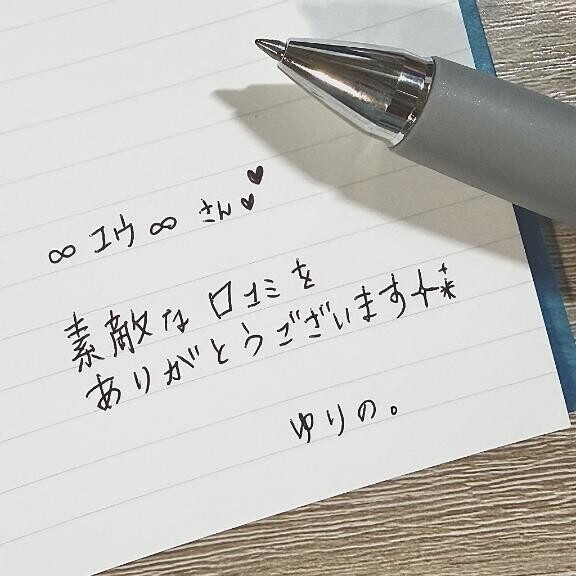 ∞ユウ∞さん♥♥
素敵な口コミを
ありがとうございます✨
ゆりの。